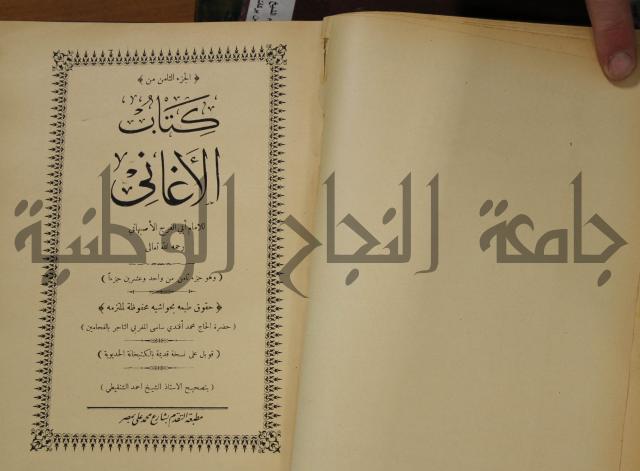 ﴿ الجزء الثامن من ﴾
كِتَابُ
الأَغَانِي
للامام أبي الفرج الأصبهاني
رحمه الله تعالى
( وهو جزء ثامن من واحد وعشرين جزءاً )
﴿ حقوق طبعه بحواشيه محفوظة لملتزمه ﴾
( حضرة الحاج محمد أفندي ساسى المغربي التاجر بالفحامين )
( قوبل على نسخة قديمة بالكتبخانة الخديوية )
( بتصحيح الاستاذ الشيخ احمد الشنقيطي )
مطبعة التقدم بشارع محمد علي بمصر
جامعة النجاح الوطنية